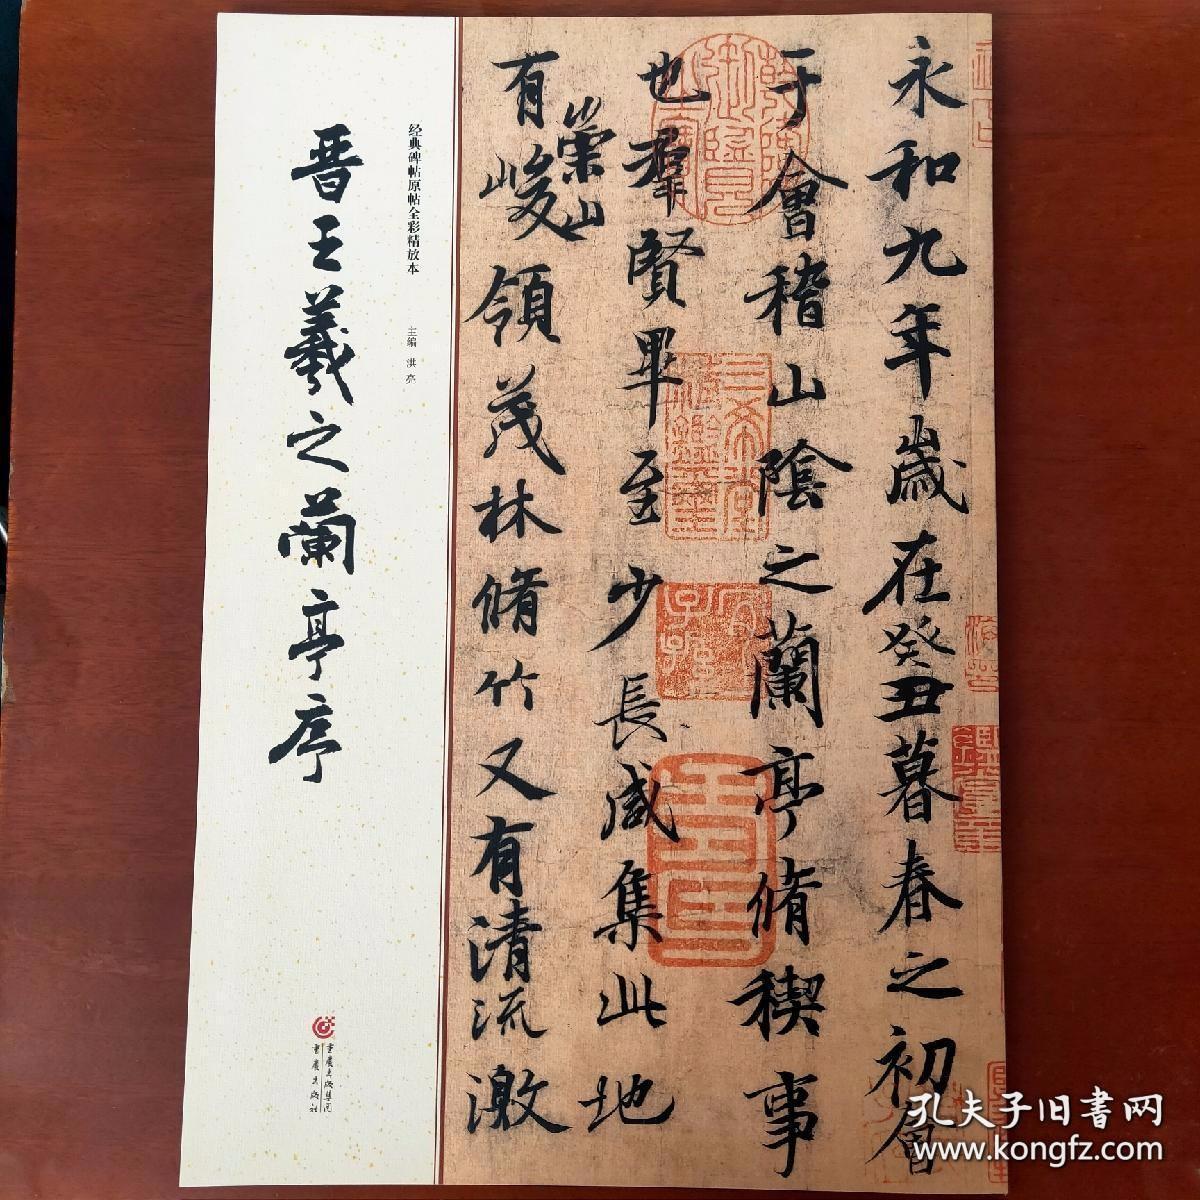 永和九年歲在癸丑暮春之初會
于會稽山陰之蘭亭脩稧事
也羣賢畢至少長咸集此地
有崇山峻領茂林脩竹又有清流激
经典碑帖原帖全彩精放本
主编 洪亮
晋王羲之蘭亭序
重庆出版集团
重庆出版社
孔夫子旧书网
www.kongfz.com